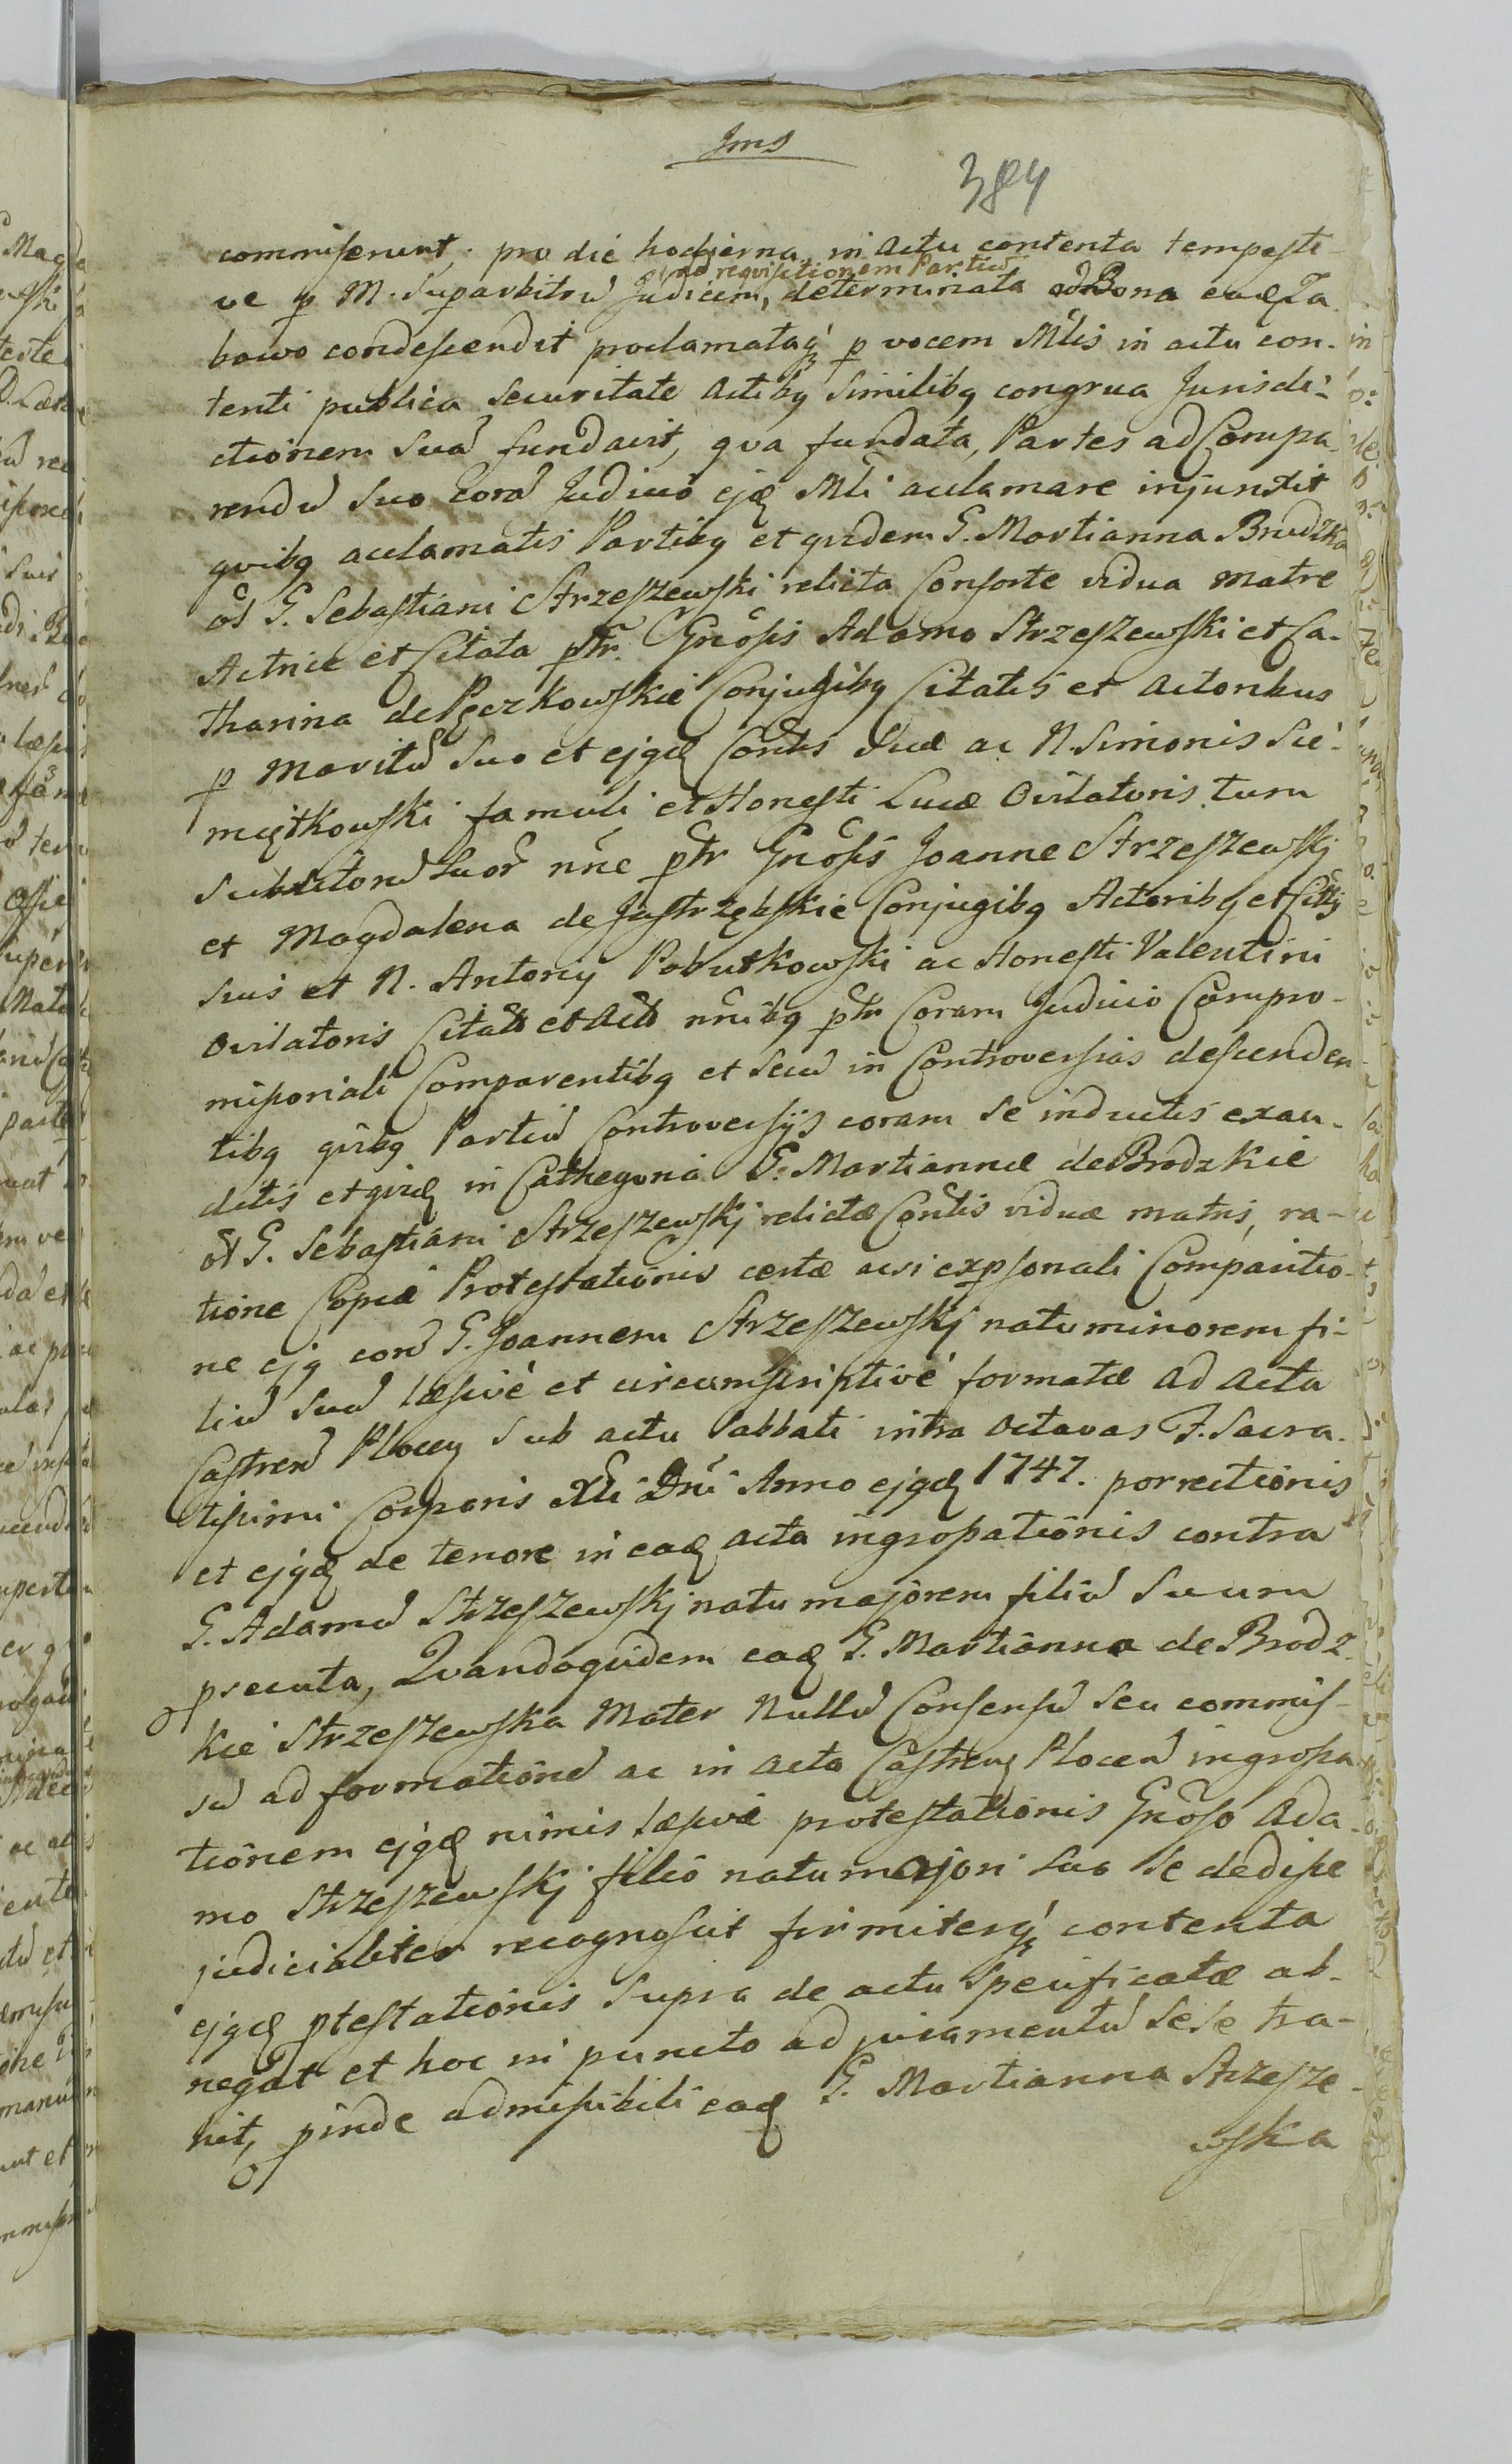 Jms
384
commiserunt, pro die hodierna in actu contenta tempesti-
ad requisitionem Partiũ
ve p M. Suparbitrũ Judicem, determinata ad Bona
bowo condescendit proclamataq́ p vocem Mlis in actu con-
tenti publica securitate actibq similibq congrua Jurisdi-
ctionem suã fundavit, qva fundata, Partes ad Compa-
rendũ suo corã Judicio ejq Mli acclamare injunxit
qvibq acclamatis Partibq et qvidem G. Martianna Brudzka
ol G. Sebastiani Strzeszewski relicta Consorte vidua matre
Actrice et Citata ptr. Gnosis Adamo Strzeszewski et Ca-
tharina de Pęczkowskie Conjugibq Citatis et Actoribus
p Maritũ suo et ejqd Contis suæ ac N. Simonis Sie-
miątkowski famuli et Honesti Lucæ Ovilatoris tum
Subditorũ suor̃ nne ptr Gnosis Joanne Strzeszewskj
et Magdalena de Jastrzębskie Conjugibq Actoribq et Cittis
suis et N. Antonij Pobutkowski ac Honesti Valentini
Ovilatoris Citatis et Actis nnibq ptr Coram Judicio Compro-
missoriali Comparentibq et secũ in Controversias descenden
tibq qũibq Partiũ Controversijs coram se inductis exau-
ditis et qvid in Cathegoria G. Martiannæ de Brodzkie
ol G. Sebastiani Strzeszewskj relictæ Contis viduæ matris, ra-
tione Copiæ Protestationis certæ acsi ex psonali Comparitio-
ne ejq con̄ G. Joannem Strzeszewskj natu minorem fi-
liũ suũ læsivè et circumscriptivè formatæ ad Acta
Castren̄ Plocen̄ sub actu Sabbati intra octavas F. Sacra-
tissimi Corporis Xti Dni Anno ejqd 1747. porrectionis
et ejqd de tenore in eaq acta ingrossationis contra
G. Adamũ Strzeszewskj natu majorem filiũ suum
psecuta, Qvandoqvidem eaq G. Martianna de Brodz-
kie Strzeszewska Mater Nullũ Consensũ seu commis-
sũ ad formationẽ ac in acta Castren̄ Plocen̄ ingrossa
tionem ejqd nimis læsivæ protestationis Gnoso Ada-
mo Strzeszewskj filio natu majori suo se dedisse
judicialiter recognoscit firmiterq́ contenta
ejqd ptestationis supra de actu specificatæ ab-
negat et hoc in puncto ad juramentũ sese tra-
hit, pinde admissibili eaq G. Martianna Strzesze-
wska